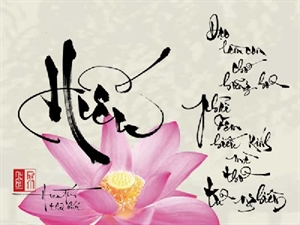 Hiếu
Đạo
làm con
chớ
hững hờ
Phải
Đem
hiếu Kính
mà
thờ
từ nghiêm